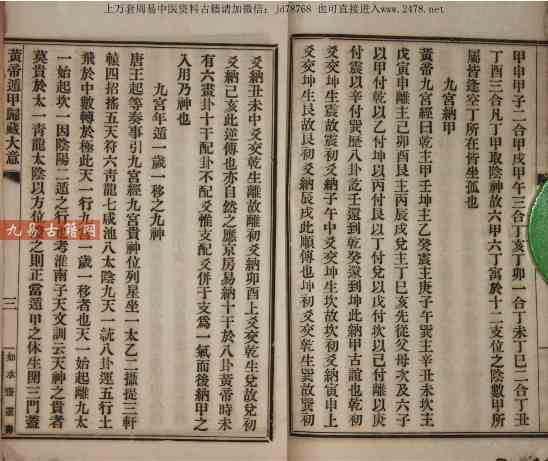 上万套周易中医资料古籍请加微信：jd78768 也可直接进入www.2478.net
甲申甲子二合甲戌甲午三合丁亥丁卯一合丁未丁巳二合丁丑
丁酉三合凡丁甲取陰神故六甲六丁寓於十二支位之陰數甲所
屬皆逢空丁所在皆坐孤也
九宮納甲
黃帝九宮經曰乾主甲子壬坤主乙癸震主庚子午巽主辛丑未坎主
戊寅申離主己卯酉艮主丙辰戌兌主丁巳亥先從父母次及六子
以甲付乾以乙付坤以丙付艮以丁付兌以戊付坎以己付離以庚
付震以辛付巽歷八卦訖壬還到乾癸還到坤此納甲古誼也乾初
爻交坤生震故震初爻納子午中爻交坤生坎故坎初爻納寅申上
爻交坤生艮故艮初爻納辰戌此順傳也坤初爻交乾生巽故巽初
爻納丑未中爻交乾生離故離初爻納卯酉上爻交乾生兌故兌初
爻納巳亥此逆傳也亦自然之應京房易納十干於八卦黃帝時未
有六畫卦十干配卦不配爻惟支配爻併干支爲一氣而後納甲之
入用乃神也
九宮年遁一歲一移之九神
唐王起等奏事引九宮經九宮貴神位列星坐一太乙二攝提三軒
轅四招搖五天符六青龍七咸池八太陰九天一統八卦運五行土
飛於中數轉於極此天一行九宮一歲一移者也天一始起離九太
一始起坎一因陰陽二遁之行考淮南子天文訓云天神之貴者
莫貴於太一青龍太陰以方位推之則正當遁甲之休生開三門蓋
黃帝遁甲歸藏大意
三
九易古籍网